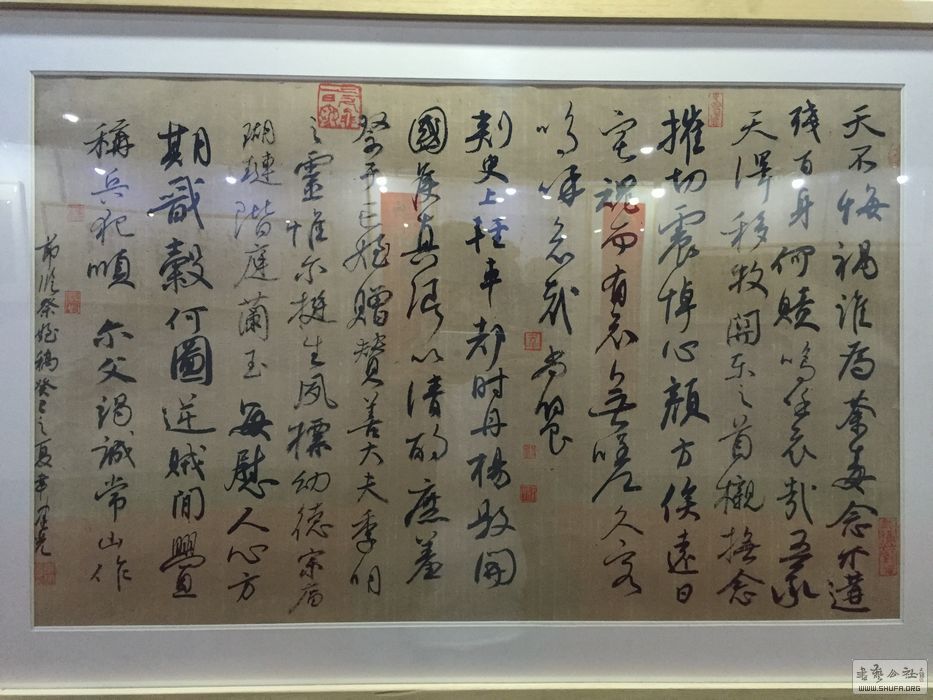 天不悔祸谁为荼毒念尔遘
残百身何赎呜乎哀哉吾承
天泽移牧关东之首榇抚念
摧切震悼心颜方俟远日
宅魂而有知无嗟久客
呜呼哀哉尚飨
刺史上轻车都尉丹杨县开
國侯真卿以清酌庶羞
祭于亡侄赠赞善大夫季明
之靈惟尔挺生夙標幼德宗廟
瑚璉階庭蘭玉每慰人心方
期戬穀何圖逆贼閒釁
稱兵犯順尔父竭誠常山作
节临祭侄稿癸巳之夏
書藝公社
WWW.SHUFA.ORG